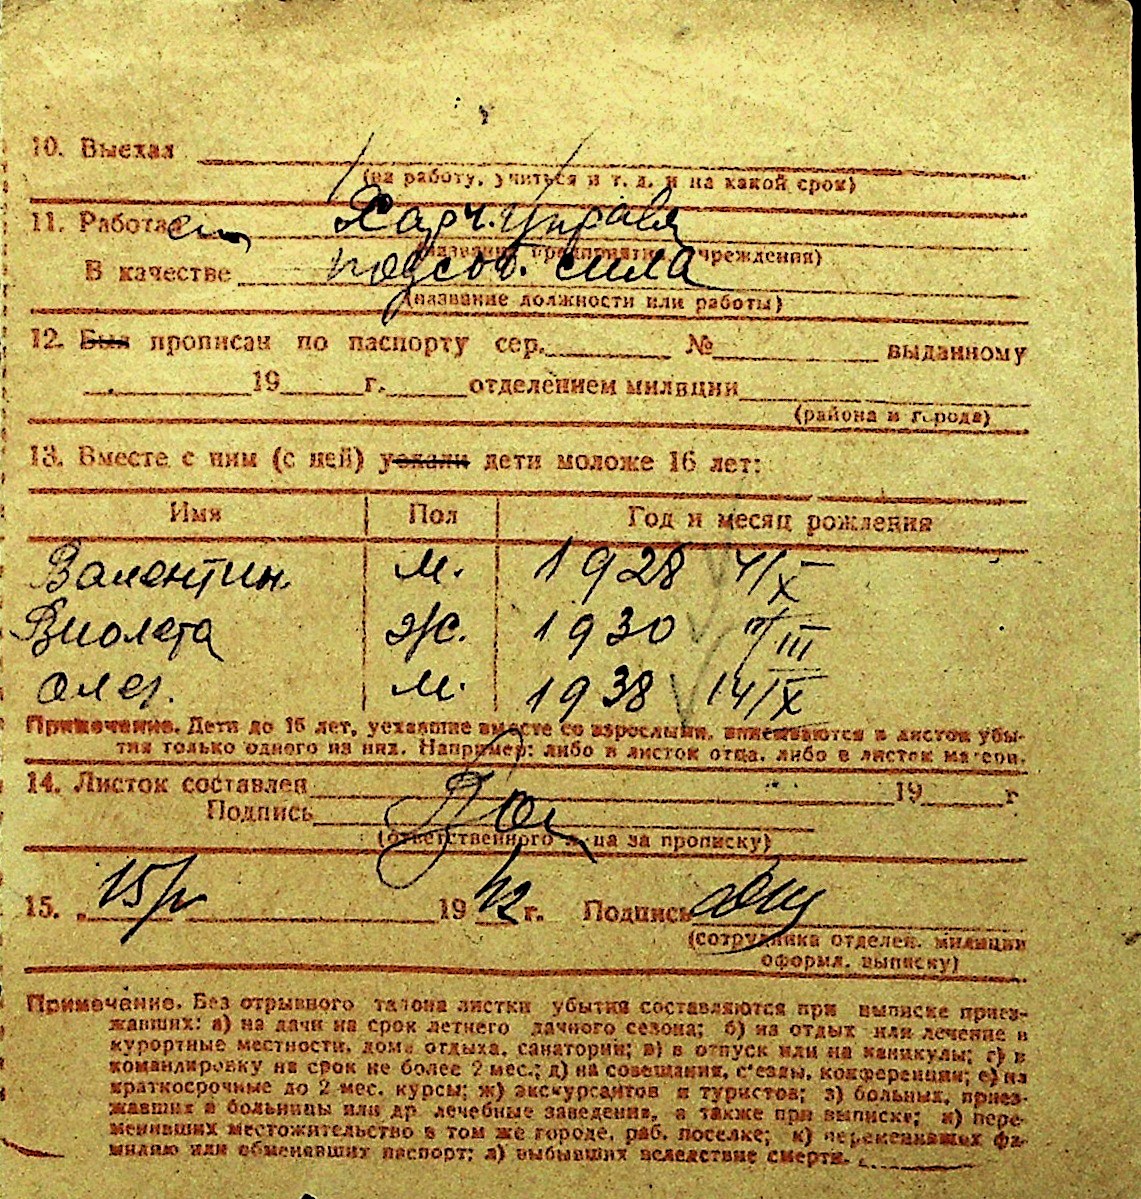 10. Выехал
(на работу, учиться и т. д. и на какой срок)
11. Работает Харч. Управл
(название предприятия учреждения)
В качестве подсоб. сила
(название должности или работы)
12. Был прописан по паспорту сер. № выданному
19 г. отделением милиции
(района и города)
13. Вместе с ним (с ней) уехали дети моложе 16 лет:
Имя Пол Год и месяц рождения
Валентин М. 1928 4/X
Виолета Ж. 1930 17/III
Олег. М. 1938 14/X
Примечание. Дети до 16 лет, уехавшие вместе со взрослыми, вписываются в листок убы-
тия только одного из них. Например: либо в листок отца, либо в листок матери.
14. Листок составлен 19 г
Подпись
(ответственного лица за прописку)
15. 15/IV 1942 г. Подпись
(сотрудника отделен. милиции
оформл. выписку)
Примечание. Без отрывного талона листки убытия составляются при выписке приез-
жавших: а) на дачи на срок летнего дачного сезона; б) на отдых или лечение в
курортные местности, дома отдыха, санатории; в) в отпуск или на каникулы; г) в
командировку на срок не более 2 мес.; д) на совещания, с'езды, конференции; е) на
краткосрочные до 2 мес. курсы; ж) экскурсантов и туристов; з) больных, приез-
жавших в больницы или др. лечебные заведения, а также при выписке; и) пере-
менивших местожительство в том же городе, раб. поселке; к) переменивших фа-
милию или обменявших паспорт; л) выбывших вследствие смерти.